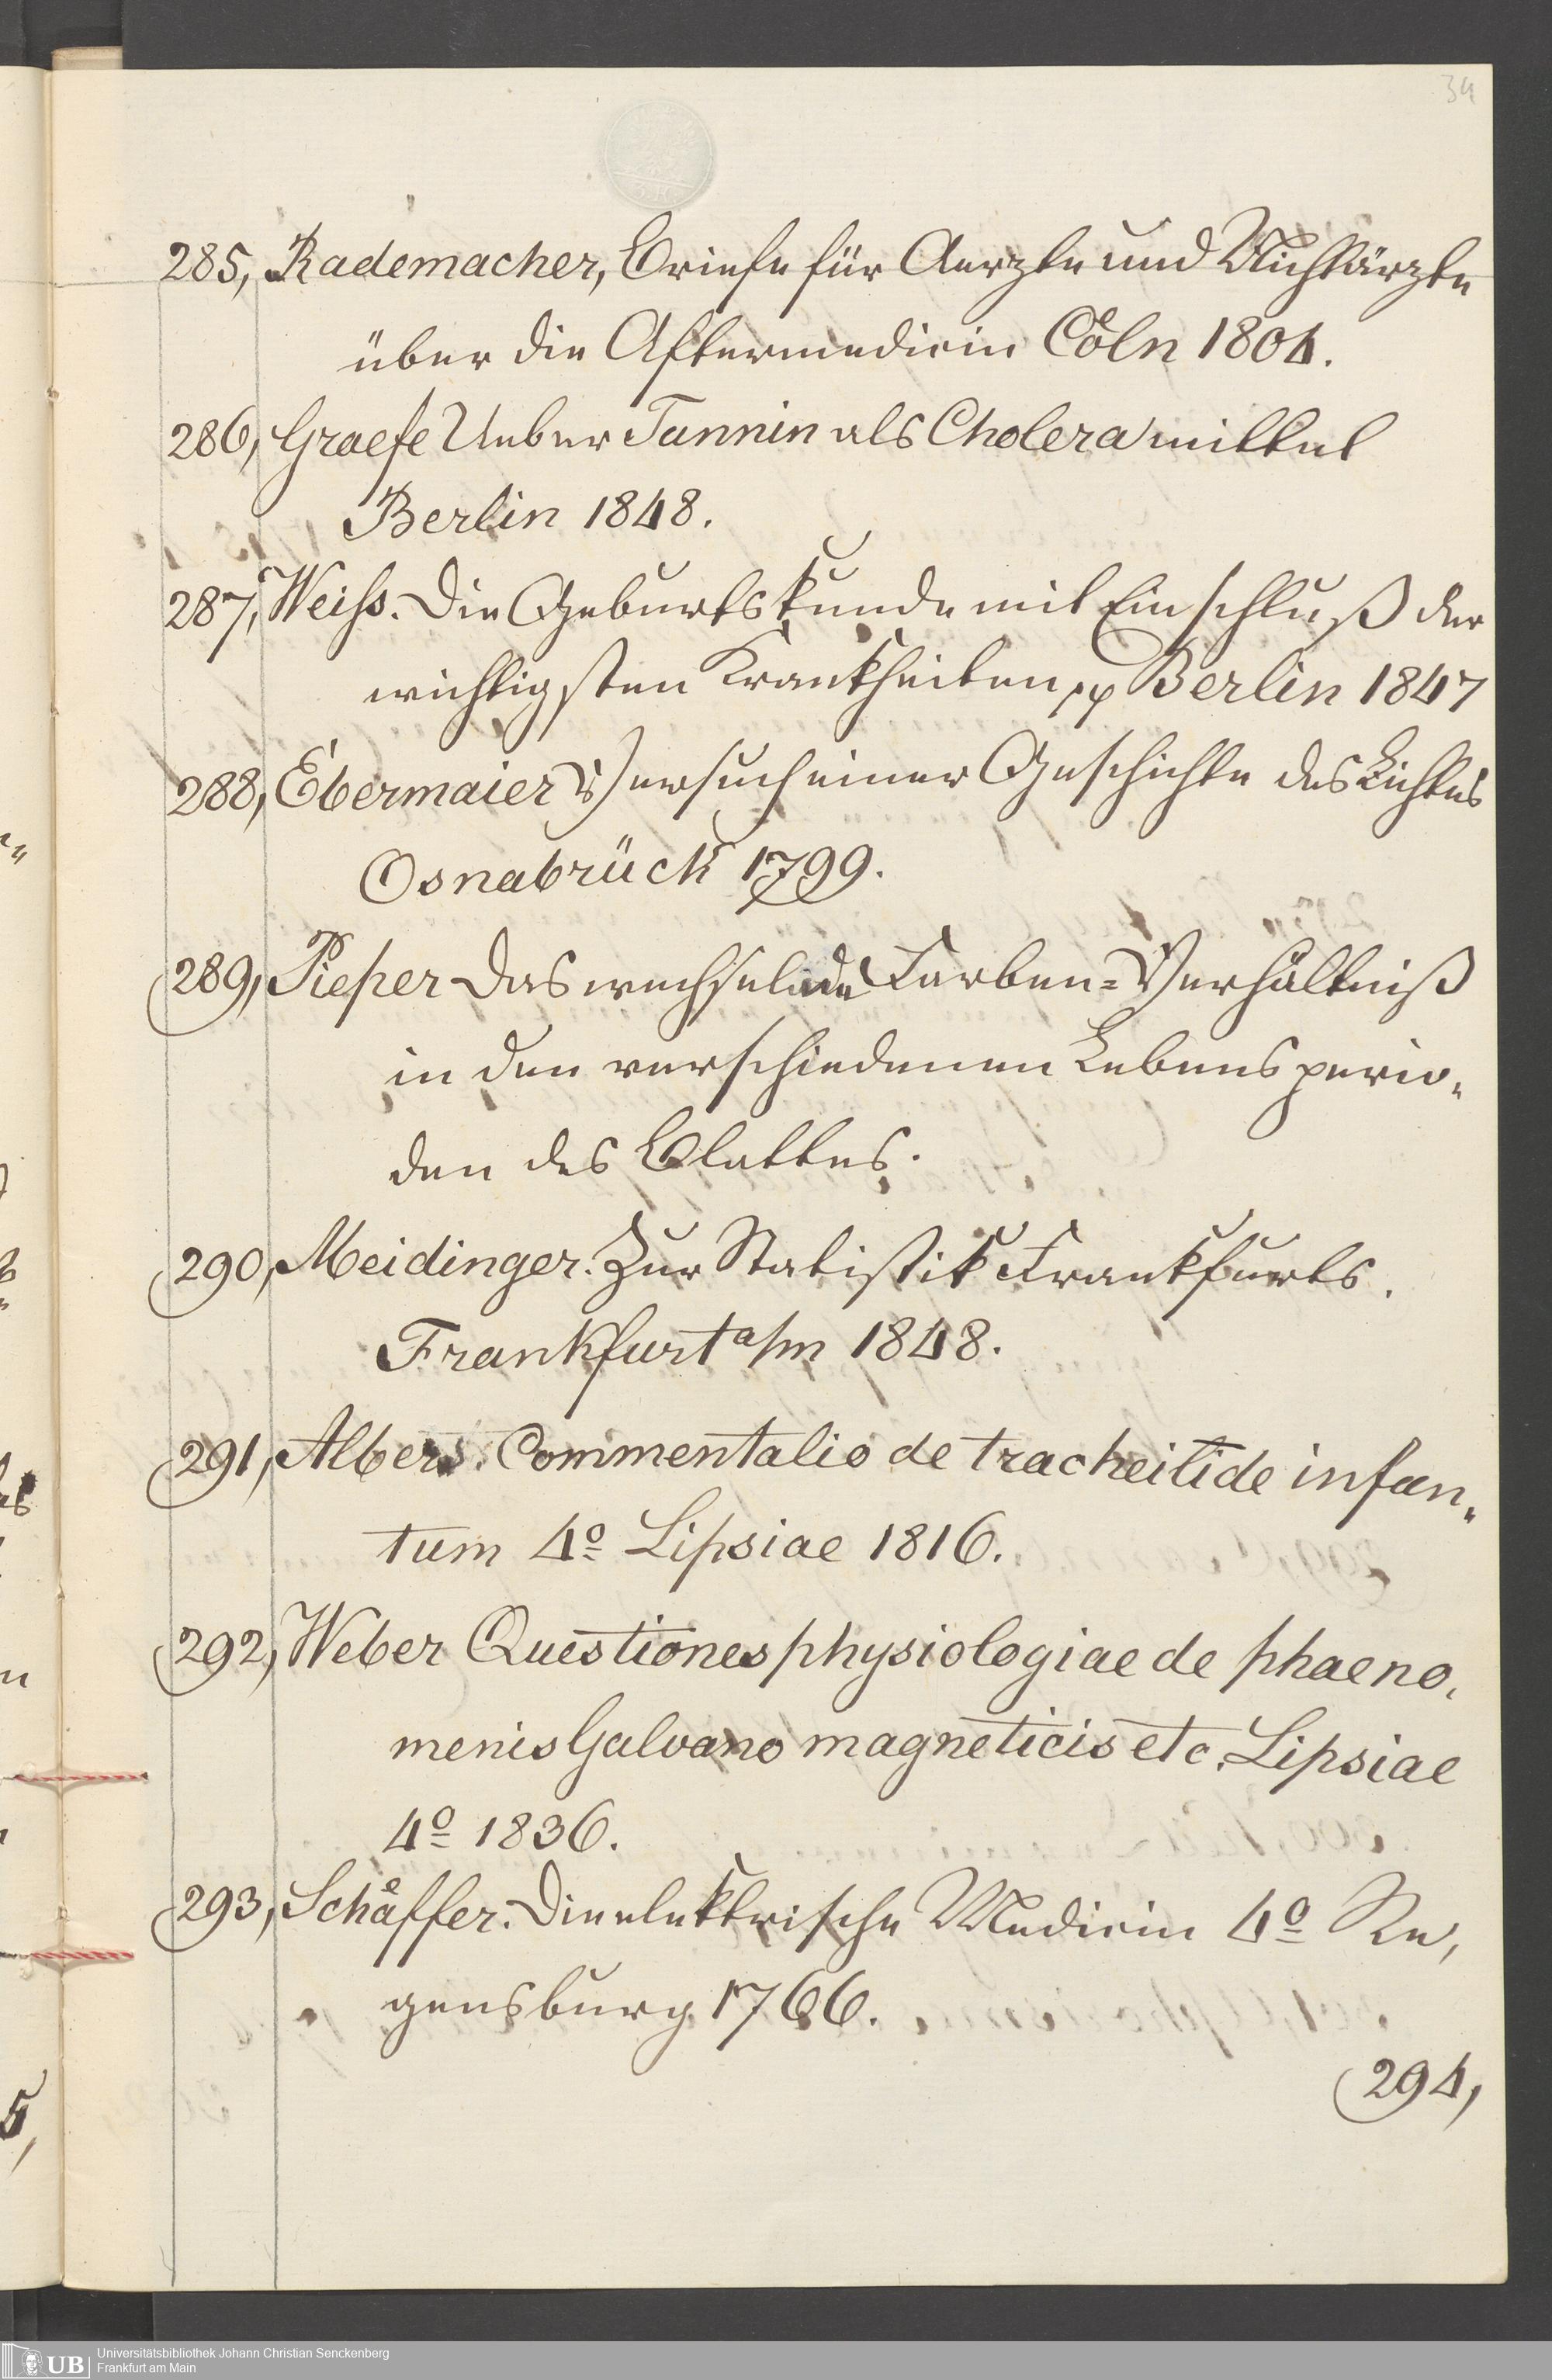 34
285, Rademacher, Briefe für Aerzte und Nichtärzte
über die Aftermedicin Cöln 1804.
286, Graefe Ueber Tannin als Choleramittel
Berlin 1848.
287, Weiss. Die Geburtskunde mit Einschluß der
wichtigsten Krankheiten pp Berlin 1847
288, Ebermaier Versuch einer Geschichte des Lichtes
Osnabrück 1799.
289, Pieper Das wechselnde Farben-Verhältniß
in den verschiedenen Lebensperio-
den des Blattes.
290, Meidinger. Zur Statistik Frankfurts.
Frankfurt a/m 1848.
291, Albers. Commentatio de tracheitide infan-
tum 4o Lipsiae 1816.
292, Weber Questiones physiologiae de phaeno-
menis Galvano magneticis etc. Lipsiae
4o 1836.
293, Schäffer. Die elektrische Medicin 4o Re-
gensburg 1766.
294,
UB Universitätsbibliothek Johann Christian Senckenberg
Frankfurt am Main